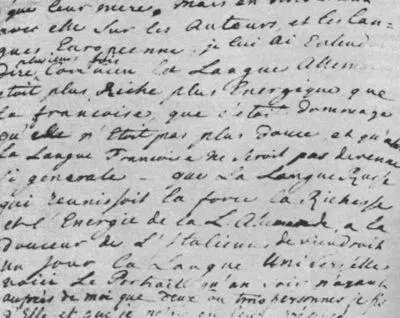 que leur mere. Mais en
avec elle sur les Auteurs, et les Lan=
gues Europeenne, je lui ai Entendu
dire plusieurs fois Combien la Langue Allem
etoit plus Riche plus Energeque que
la francoise, que c'etoit dommage
qu'elle n'etoit pas plus douce, et qu'a
la Langue Francoise ne seroit pas devenue
si generale - que La Langue Russe
qui reunissoit la force la Richesse
et l'Energie de la L. Allemande, a la
douceur de L'Italienne deviendroit
un jour la Langue Universelle,
voici Le Portrait qu'un soir n'ayant
aupres de moi que deux ou trois personnes je fis
d'Elle et que je